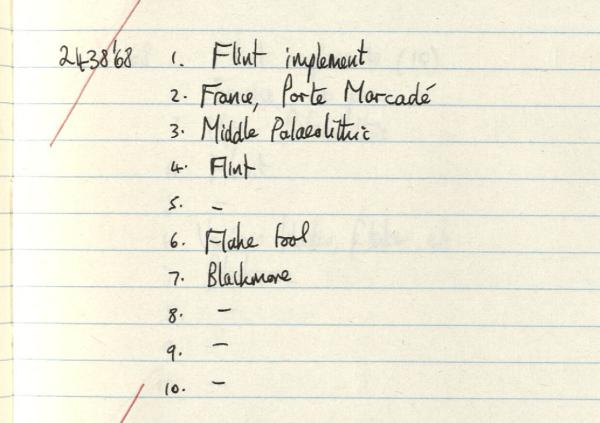 2438'68 1. Flint implement
2. France, Porte Marcadé
3. Middle Palaeolithic
4. Flint
5. –
6. Flake tool
7. Blackmore
8. –
9. –
10. –